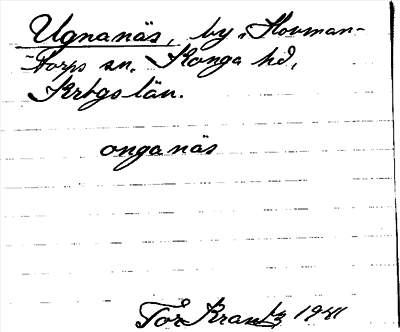 Ugnanäs, by, Hovman-
torps sn. Konga hd,
Krbgs län.
onganäs
Tor Krantz 1941